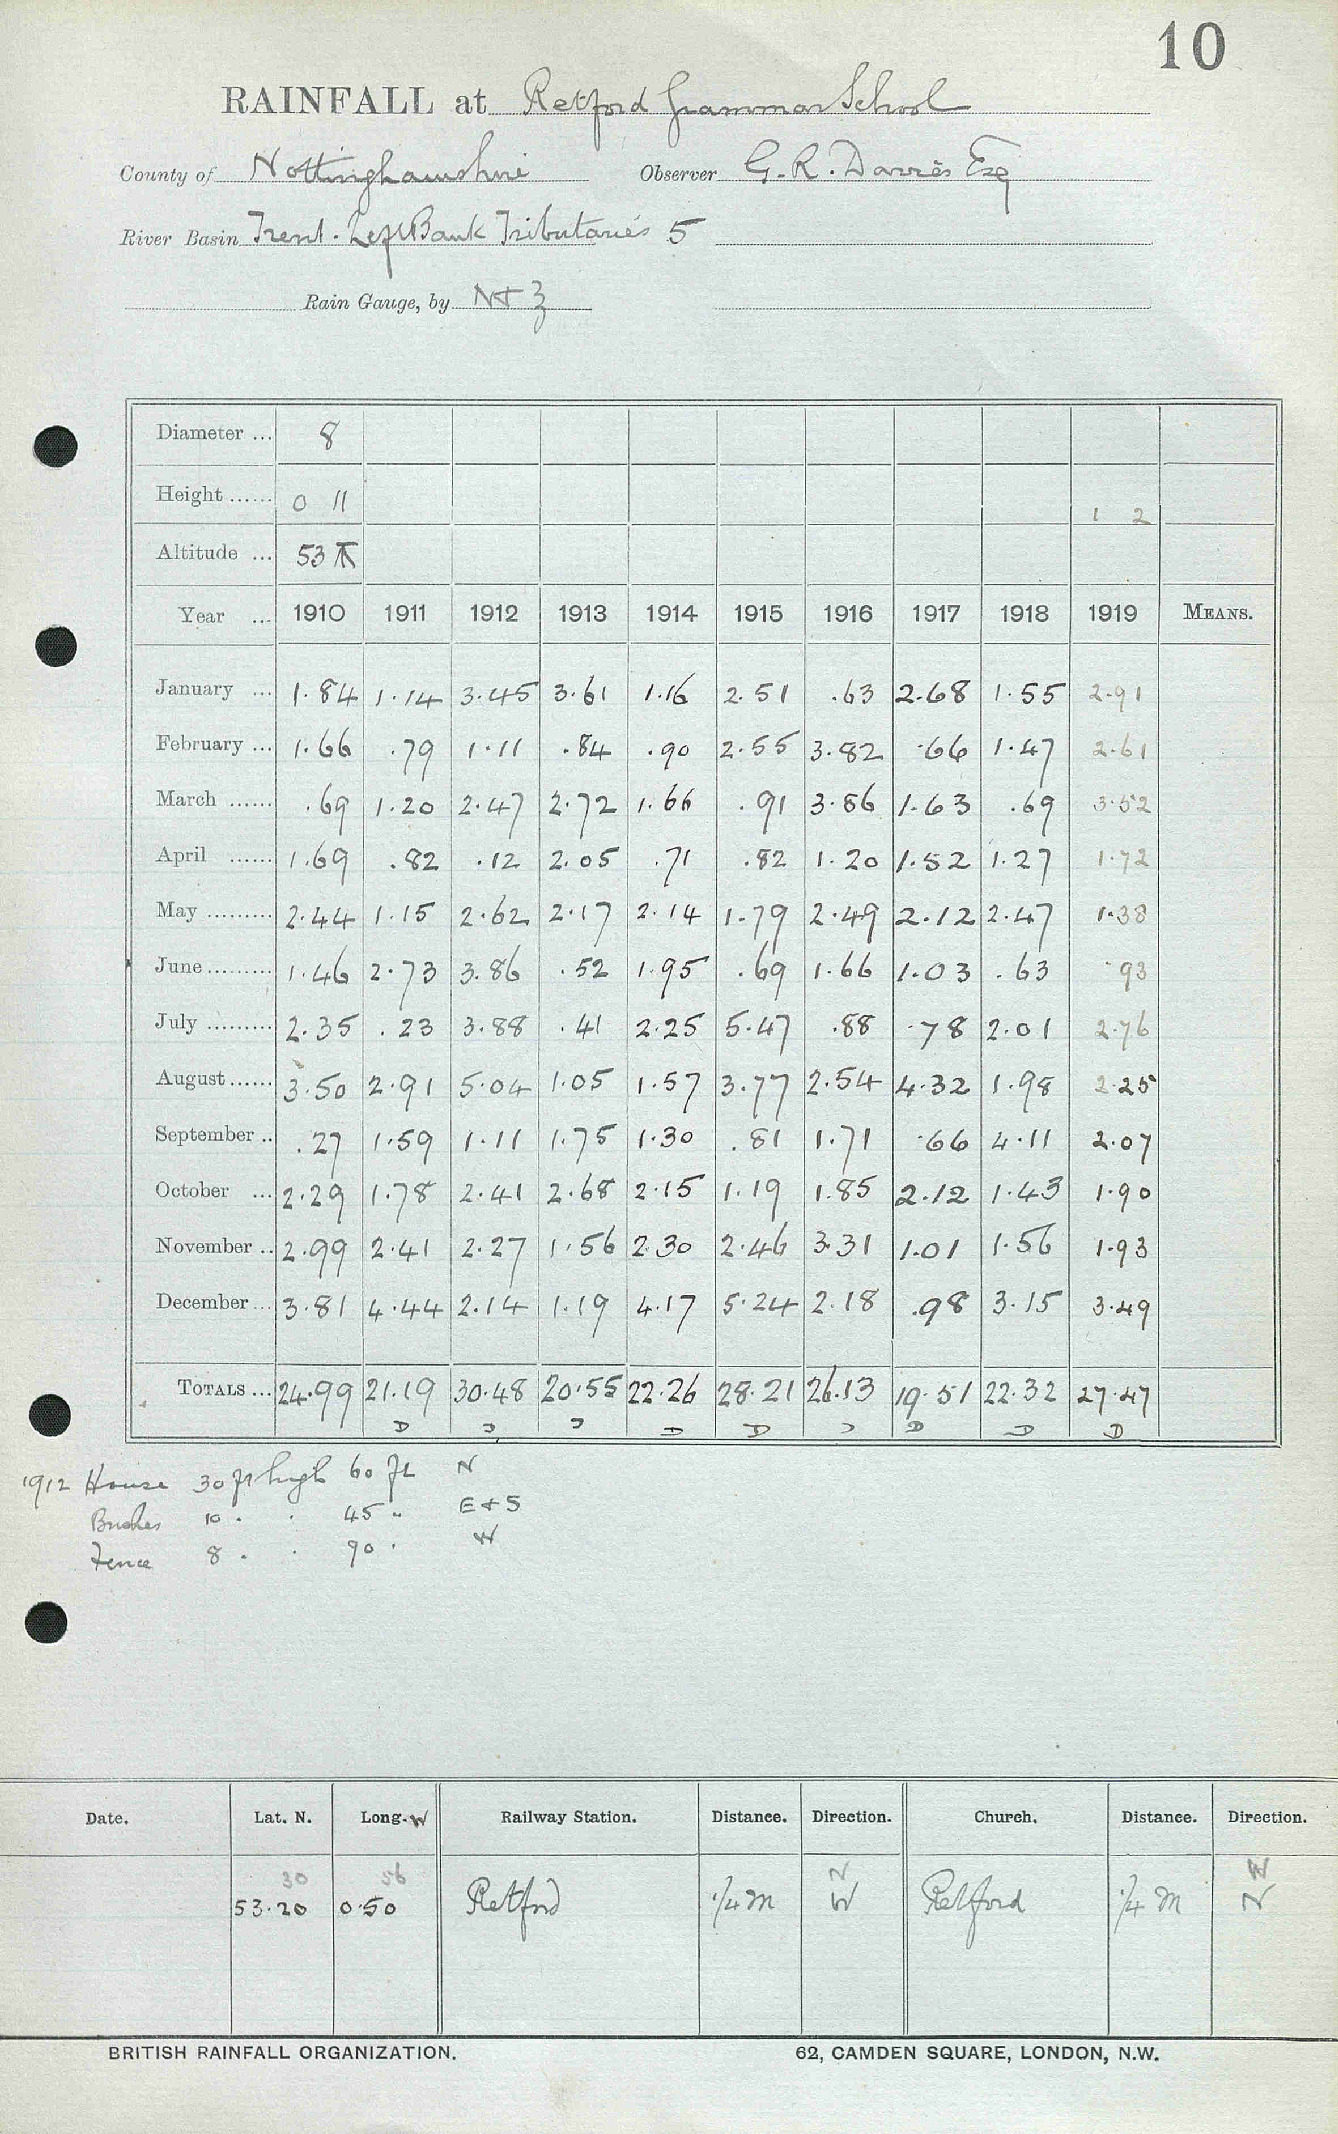 10
RAINFALL at Retford Grammar School
County of Nottinghamshire Observer G. R. Davies Esq
River Basin Trent. Left Bank Tributaries 5
Rain Gauge, by N & Z
Diameter ... 8
Height ...... 0 11 1 2
Altitude ... 53
Year ... 1910 1911 1912 1913 1914 1915 1916 1917 1918 1919 MEANS.
January ... 1.84 1.14 3.45 3.61 1.16 2.51 .63 2.68 1.55 2.91
February ... 1.66 .79 1.11 .84 .90 2.55 3.82 .66 1.47 2.61
March ...... .69 1.20 2.47 2.72 1.66 .91 3.86 1.63 .69 3.52
April ...... 1.69 .82 .12 2.05 .71 .82 1.20 1.52 1.27 1.72
May ......... 2.44 1.15 2.62 2.17 2.14 1.79 2.49 2.12 2.47 1.38
June ......... 1.46 2.73 3.86 .52 1.95 .69 1.66 1.03 .63 .93
July ......... 2.35 .23 3.88 .41 2.25 5.47 .88 .78 2.01 2.76
August ...... 3.50 2.91 5.04 1.05 1.57 3.77 2.54 4.32 1.98 2.25
September .. .27 1.59 1.11 1.75 1.30 .81 1.71 .66 4.11 2.07
October ... 2.29 1.78 2.41 2.68 2.15 1.19 1.85 2.12 1.43 1.90
November .. 2.99 2.41 2.27 1.56 2.30 2.46 3.31 1.01 1.56 1.93
December ... 3.81 4.44 2.14 1.19 4.17 5.24 2.18 .98 3.15 3.49
TOTALS ... 24.99 21.19 30.48 20.55 22.26 28.21 26.13 19.51 22.32 27.47
D D D D D D D D D
1912 House 30 ft high 60 ft N
Bushes 10 " " 45 " E & S
Fence 8 " " 90 " W
Date. Lat. N. Long. W Railway Station. Distance. Direction. Church. Distance. Direction.
30 56 N W
53.20 0.50 Retford 1/4 m W Retford 1/4 m N
BRITISH RAINFALL ORGANIZATION. 62, CAMDEN SQUARE, LONDON, N.W.